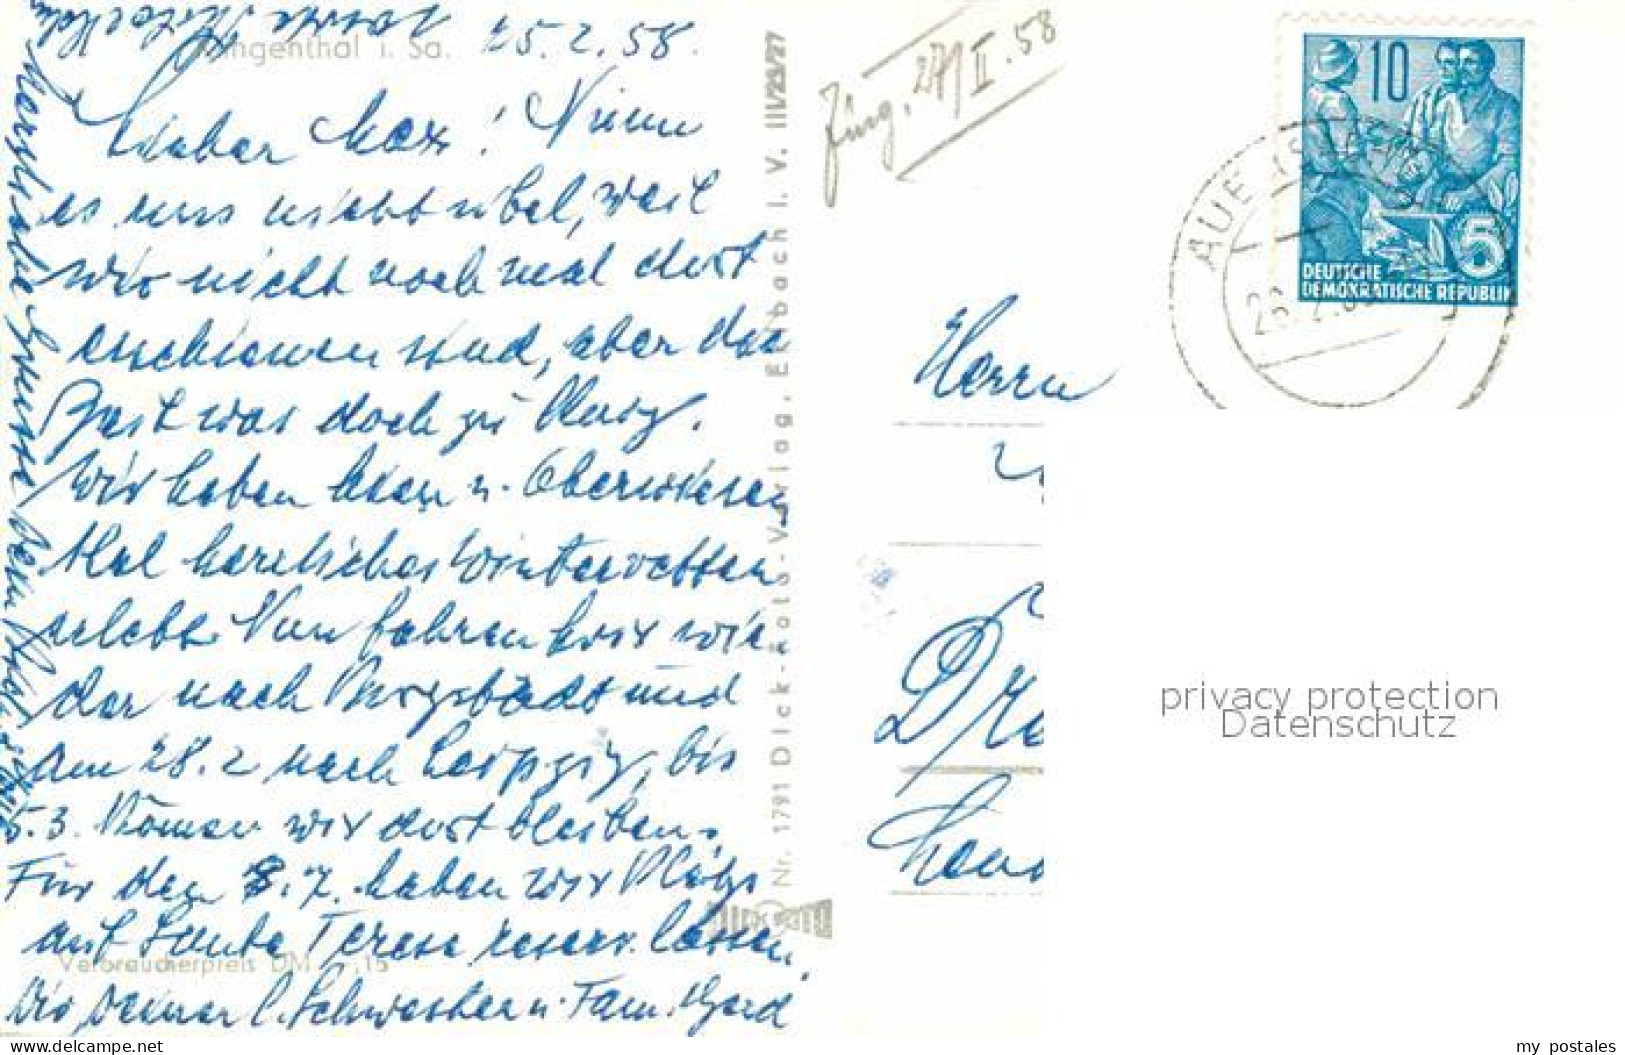 Klingenthal i. Sa.
25.2.58.
Lieber Max! Nimm
es uns nicht übel, weil
wir nicht noch mal dort
erschienen sind, aber die
Zeit war doch zu kurz.
Wir haben hier u. Oberwiesen
thal herrliches Winterwetter
erlebt. Nun fahren wir wie
der nach Burgstädt und
am 28.2 nach Leipzig, bis
5.3. können wir dort bleiben.
Für den 8.7. haben wir Plätze
auf Santa Teresa reserv. lassen.
Schwester u. Fam. Gerd
Herzliche Grüsse Dein
Verbraucherpreis DM -,15
Nr. 1791 Dick-Foto-Verlag, Erlbach i. V. III/23/27
DICK FOTO
27/II.58
10
5
DEUTSCHE
DEMOKRATISCHE REPUBLIK
AUE (SACHS
26.2.
Herrn
privacy protection
Datenschutz
www.delcampe.net
my_postales